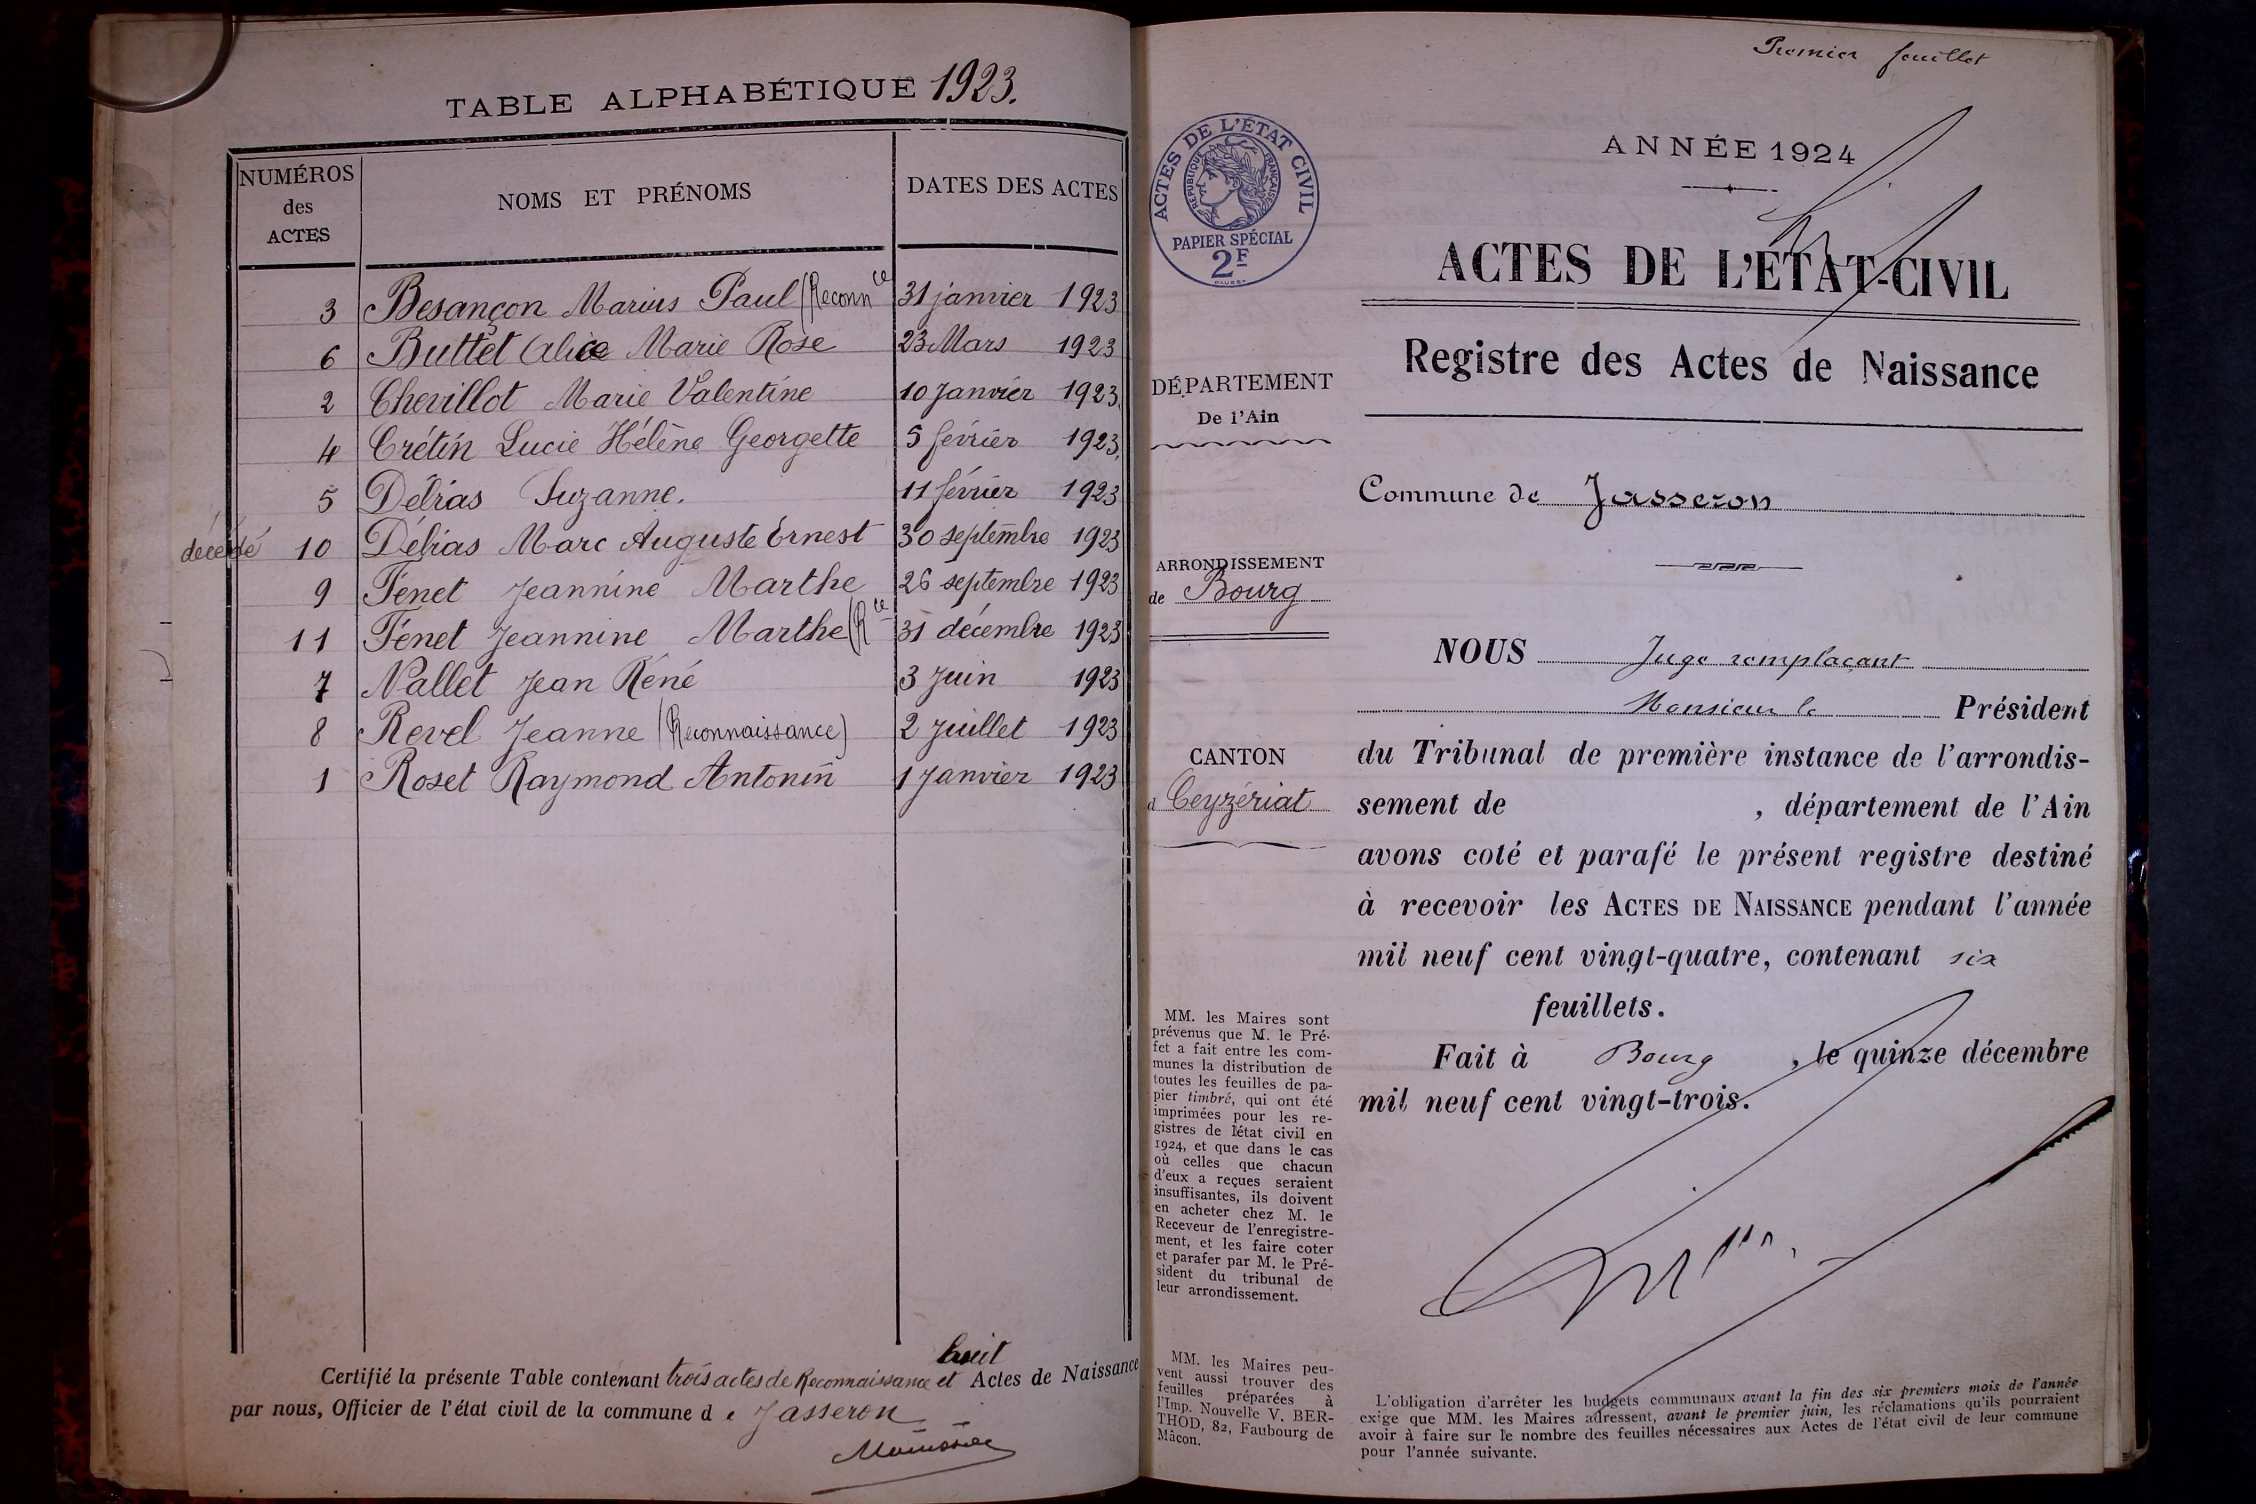 TABLE ALPHABÉTIQUE 1923.
NUMÉROS des ACTES
NOMS ET PRÉNOMS
DATES DES ACTES
3 Besançon Marius Paul (Reconnce 31 janvier 1923
6 Buttet Alice Marie Rose 23 Mars 1923
2 Chevillot Marie Valentine 10 Janvier 1923
4 Crétin Lucie Hélène Georgette 5 février 1923
5 Délias Suzanne. 11 février 1923
décédé 10 Délias Marc Auguste Ernest 30 septembre 1923
9 Fénet Jeannine Marthe 26 septembre 1923
11 Fénet Jeannine Marthe (Rce 31 décembre 1923
7 Nallet Jean Réné 3 Juin 1923
8 Revel Jeanne (Reconnaissance) 2 Juillet 1923
1 Roset Raymond Antonin 1 Janvier 1923
huit
Certifié la présente Table contenant trois actes de Reconnaissance et Actes de Naissance
par nous, Officier de l'état civil de la commune d e Jasseron
Premier feuillet
ACTES DE L'ÉTAT CIVIL
RÉPUBLIQUE FRANÇAISE
PAPIER SPÉCIAL
2F
ANNÉE 1924
ACTES DE L'ÉTAT-CIVIL
Registre des Actes de Naissance
DÉPARTEMENT
De l'Ain
Commune de Jasseron
ARRONDISSEMENT
de Bourg
NOUS Juge remplaçant
Monsieur le Président
CANTON
d Ceyzériat
du Tribunal de première instance de l'arrondis-
sement de , département de l'Ain
avons coté et parafé le présent registre destiné
à recevoir les ACTES DE NAISSANCE pendant l'année
mil neuf cent vingt-quatre, contenant six
feuillets.
Fait à Bourg , le quinze décembre
mil neuf cent vingt-trois.
MM. les Maires sont
prévenus que M. le Pré-
fet a fait entre les com-
munes la distribution de
toutes les feuilles de pa-
pier timbré, qui ont été
imprimées pour les re-
gistres de l'état civil en
1924, et que dans le cas
où celles que chacun
d'eux a reçues seraient
insuffisantes, ils doivent
en acheter chez M. le
Receveur de l'enregistre-
ment, et les faire coter
et parafer par M. le Pré-
sident du tribunal de
leur arrondissement.
MM. les Maires peu-
vent aussi trouver des
feuilles préparées à
l'Imp. Nouvelle V. BER-
THOD, 82, Faubourg de
Mâcon.
L'obligation d'arrêter les budgets communaux avant la fin des six premiers mois de l'année
exige que MM. les Maires adressent, avant le premier juin, les réclamations qu'ils pourraient
avoir à faire sur le nombre des feuilles nécessaires aux Actes de l'état civil de leur commune
pour l'année suivante.